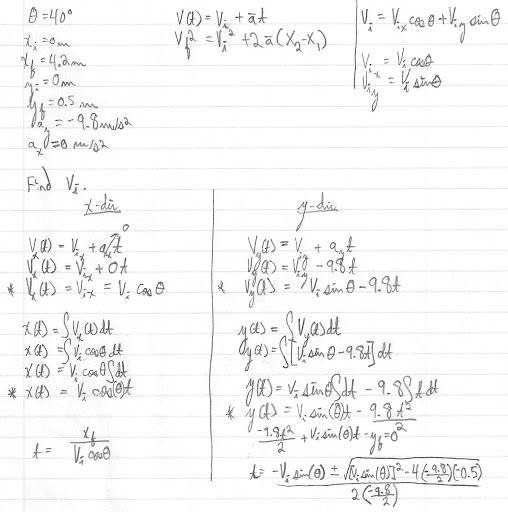 θ = 40°
x_i = 0m
x_f = 4.2m
y_i = 0m
y_f = 0.5 m
a_y = -9.8 m/s²
a_x = 0 m/s²
V(t) = V_i + āt
V_f² = V_i² + 2ā(X₂-X₁)
V_i = V_ix cosθ + V_iy sinθ
V_ix = V_i cosθ
V_iy = V_i sinθ
Find V_i.
x-dir
V_x(t) = V_ix + a_x t⁰
V_x(t) = V_ix + 0t
* V_x(t) = V_ix = V_i cos θ
x(t) = ∫V_x(t)dt
x(t) = ∫V_i cosθ dt
x(t) = V_i cosθ∫dt
* x(t) = V_i cos(θ)t
t = x_f / V_i cosθ
y-dir
V_y(t) = V_iy + a_y t
V_y(t) = V_iy - 9.8t
* V_y(t) = V_i sinθ - 9.8t
y(t) = ∫V_y(t)dt
y(t) = ∫[V_i sinθ - 9.8t]dt
y(t) = V_i sinθ∫dt - 9.8∫t dt
* y(t) = V_i sin(θ)t - 9.8t²/2
-9.8t²/2 + V_i sin(θ)t - y_f = 0
t = -V_i sin(θ) ± √([V_i sin(θ)]² - 4(-9.8/2)(-0.5)) / 2(-9.8/2)